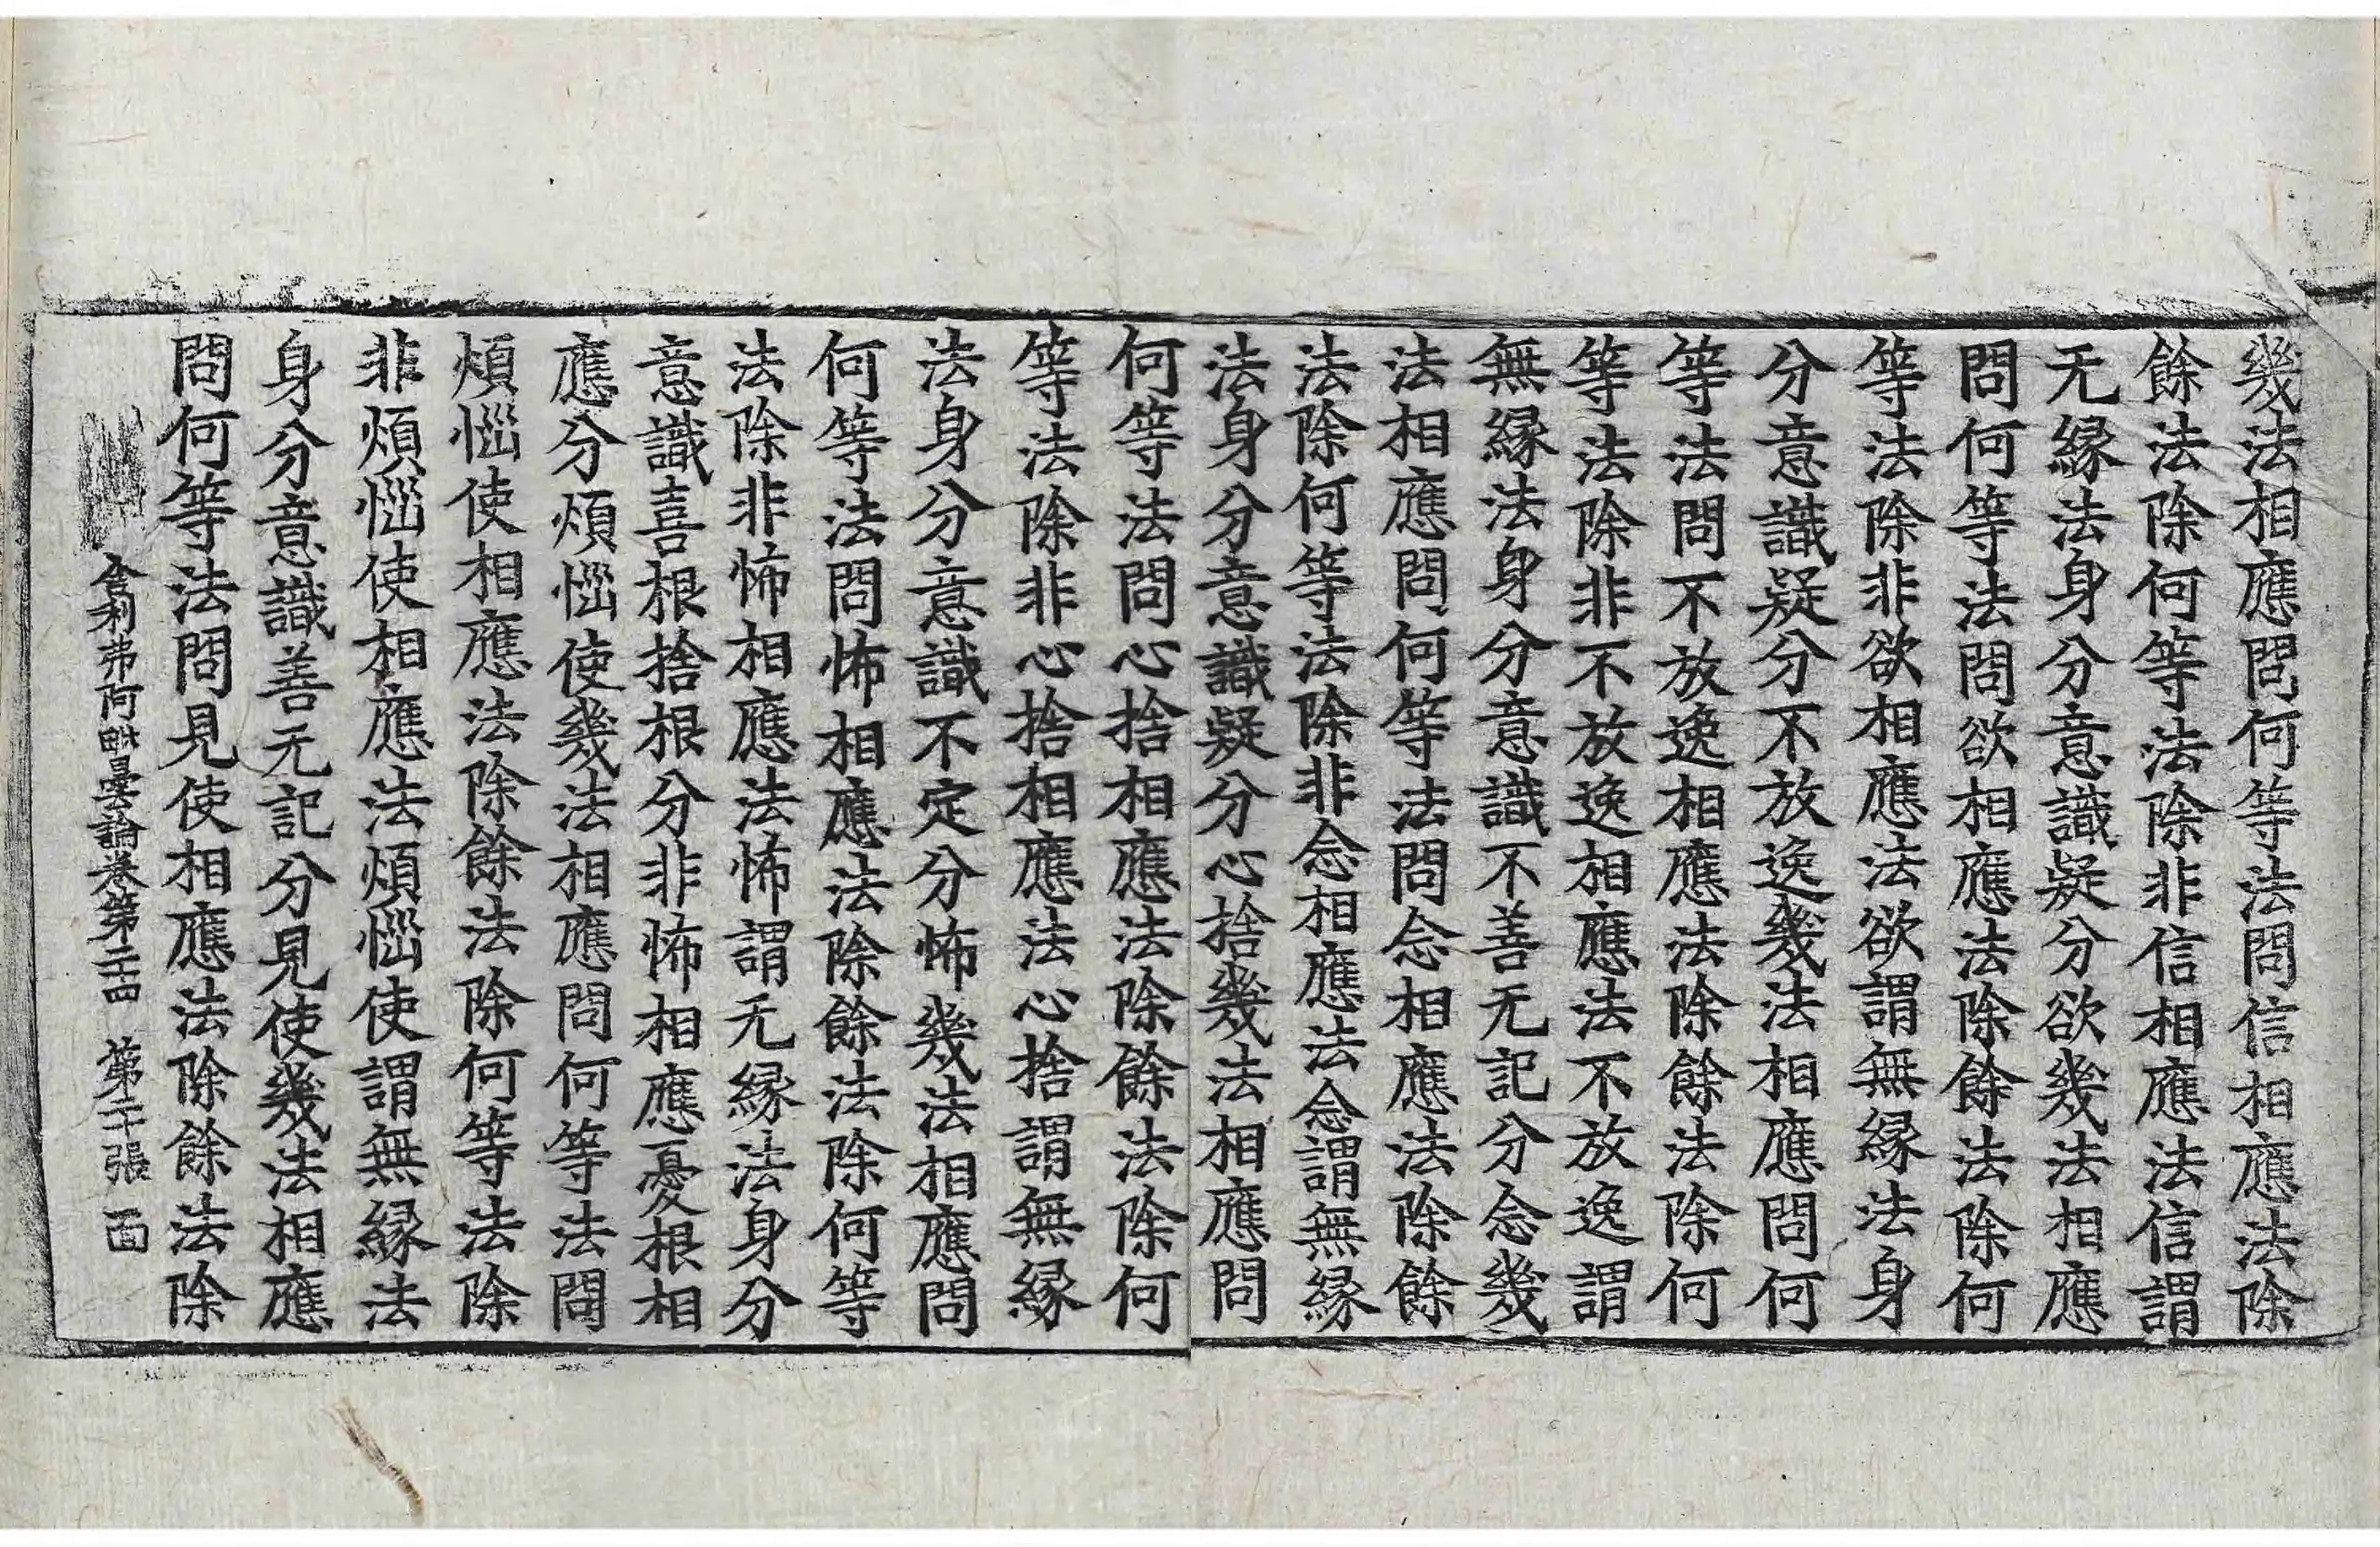 幾法相應問何等法問信相應法除
餘法除何等法除非信相應法信謂
无緣法身分意識疑分欲幾法相應
問何等法問欲相應法除餘法除何
等法除非欲相應法欲謂無緣法身
分意識疑分不放逸幾法相應問何
等法問不放逸相應法除餘法除何
等法除非不放逸相應法不放逸謂
無緣法身分意識不善无記分念幾
法相應問何等法問念相應法除餘
法除何等法除非念相應法念謂無緣
法身分意識疑分心捨幾法相應問
何等法問心捨相應法除餘法除何
等法除非心捨相應法心捨謂無緣
法身分意識不定分怖幾法相應問
何等法問怖相應法除餘法除何等
法除非怖相應法怖謂无緣法身分
意識喜根捨根分非怖相應憂根相
應分煩惱使幾法相應問何等法問
煩惱使相應法除餘法除何等法除
非煩惱使相應法煩惱使謂無緣法
身分意識善无記分見使幾法相應
問何等法問見使相應法除餘法除
舍利弗阿毗曇論卷第二十四 第二十張 面